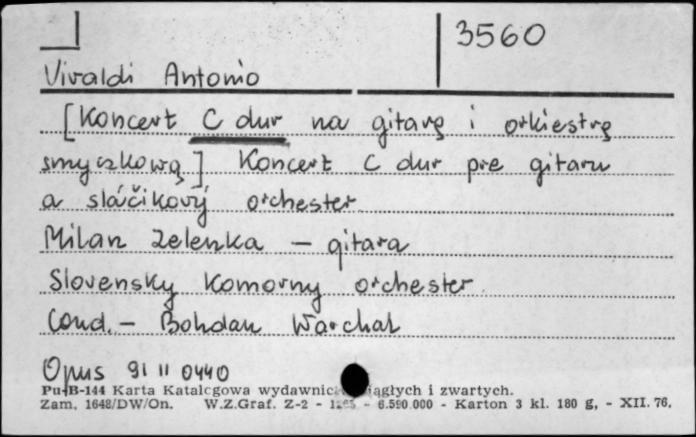 3560
Vivaldi Antonio
[Koncert C dur na gitarę i orkiestrę
smyczkową] Koncert C dur pre gitaru
a sláčikový orchester
Milan Zelenka – gitara
Slovensky Komorny orchester
Cond. – Bohdan Warchal
Opus 91 11 0440
Pu-B-144 Karta Katalogowa wydawnictw ciągłych i zwartych.
Zam. 1648/DW/On. W.Z.Graf. Z-2 - - 6.590.000 - Karton 3 kl. 180 g, - XII. 76.